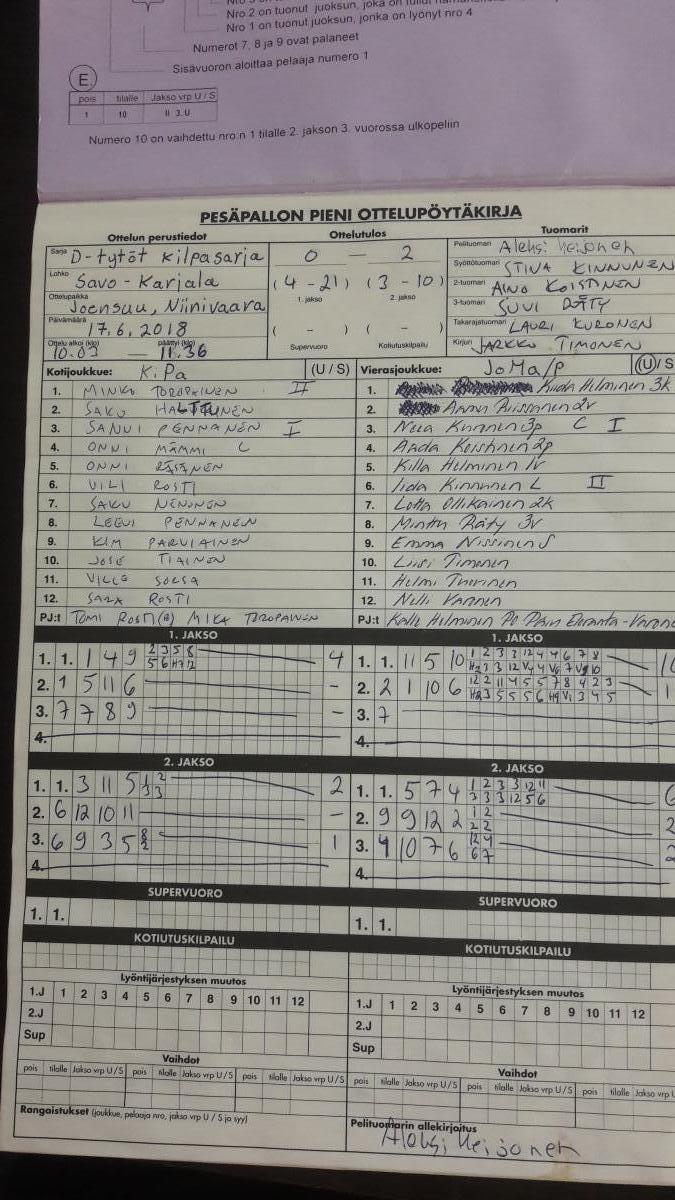 Nro 2 on tuonut juoksun, joka on tullut
Nro 1 on tuonut juoksun, jonka on lyönyt nro 4
Numerot 7, 8 ja 9 ovat palaneet
Sisävuoron aloittaa pelaaja numero 1
E.
pois tilalle Jakso vrp U / S
1 10 II 3. U
Numero 10 on vaihdettu nro:n 1 tilalle 2. jakson 3. vuorossa ulkopeliin
PESÄPALLON PIENI OTTELUPÖYTÄKIRJA
Ottelun perustiedot Ottelutulos Tuomarit
Sarja D-tytöt kilpasarja 0 — 2 Pelituomari Aleksi Keijonen
Lohko Savo-Karjala (4 - 21) (3 - 10) Syöttötuomari STINA KINNUNEN
1. jakso 2. jakso 2-tuomari AINO KOISTINEN
Ottelupaikka Joensuu, Niinivaara 3-tuomari SUVI RÄTY
Päivämäärä 17.6.2018 ( - ) ( - ) Takarajatuomari LAURI KURONEN
Ottelu alkoi (klo) 10.03 — päättyi (klo) 11.36 Supervuoro Kotiutuskilpailu Kirjuri JARKKO TIMONEN
Kotijoukkue: KiPa (U / S) Vierasjoukkue: JoMa/P (U)/S
1. MINKO TOROPAINEN II 1. Helminen 3k
2. SAKU 2. 2v
3. SANUI PENNANEN I 3. Neea 3p C I
4. ONNI MÄMMI C 4. 2p
5. ONNI RÄSÄNEN 5. Killa Helminen 1v
6. VILI ROSTI 6. Iida Kinnunen L II
7. SAKU NENONEN 7. Lotta Ollikainen 2k
8. LEEVI PENNANEN 8. Minttu Räty 3v
9. KIM PARVIAINEN 9. Emma Nissinen S
10. JOSE TIAINEN 10. Liisi Timonen
11. VILLE 11. Helmi
12. SARA ROSTI 12. Nelli
PJ:t TOMI ROSTI MIKA TOROPAINEN PJ:t Kalle Helminen
1. JAKSO 1. JAKSO
1. 1. 1 4 9 2 3 5 8 4 1. 1. 11 5 10 1 2 3 3 12 4 4 6 7 8
5 6 H7 12
2. 1 5 11 6 - 2. 2 1 10 6 12 2 11 4 5 5 7 8 4 2 3
3. 7 7 8 9 - 3. 7
4. 4.
2. JAKSO 2. JAKSO
1. 1. 3 11 5 2 1. 1. 5 7 4 1 2 3 3 12 11
3 3 3 12 5 6
2. 6 12 10 11 - 2. 9 9 12 2 1 2
2 2
3. 6 9 3 5 8 1 3. 4 10 7 6 12 4
2 6 7
4. 4.
SUPERVUORO SUPERVUORO
1. 1. 1. 1.
KOTIUTUSKILPAILU KOTIUTUSKILPAILU
Lyöntijärjestyksen muutos Lyöntijärjestyksen muutos
1.J 1 2 3 4 5 6 7 8 9 10 11 12 1.J 1 2 3 4 5 6 7 8 9 10 11 12
2.J 2.J
Sup Sup
Vaihdot Vaihdot
pois tilalle Jakso vrp U / S pois tilalle Jakso vrp U / S pois tilalle Jakso vrp U / S pois tilalle Jakso vrp U / S pois tilalle Jakso vrp U / S pois tilalle Jakso vrp
Rangaistukset (joukkue, pelaaja nro, jakso vrp U / S ja syy) Pelituomarin allekirjoitus
Aleksi Keijonen